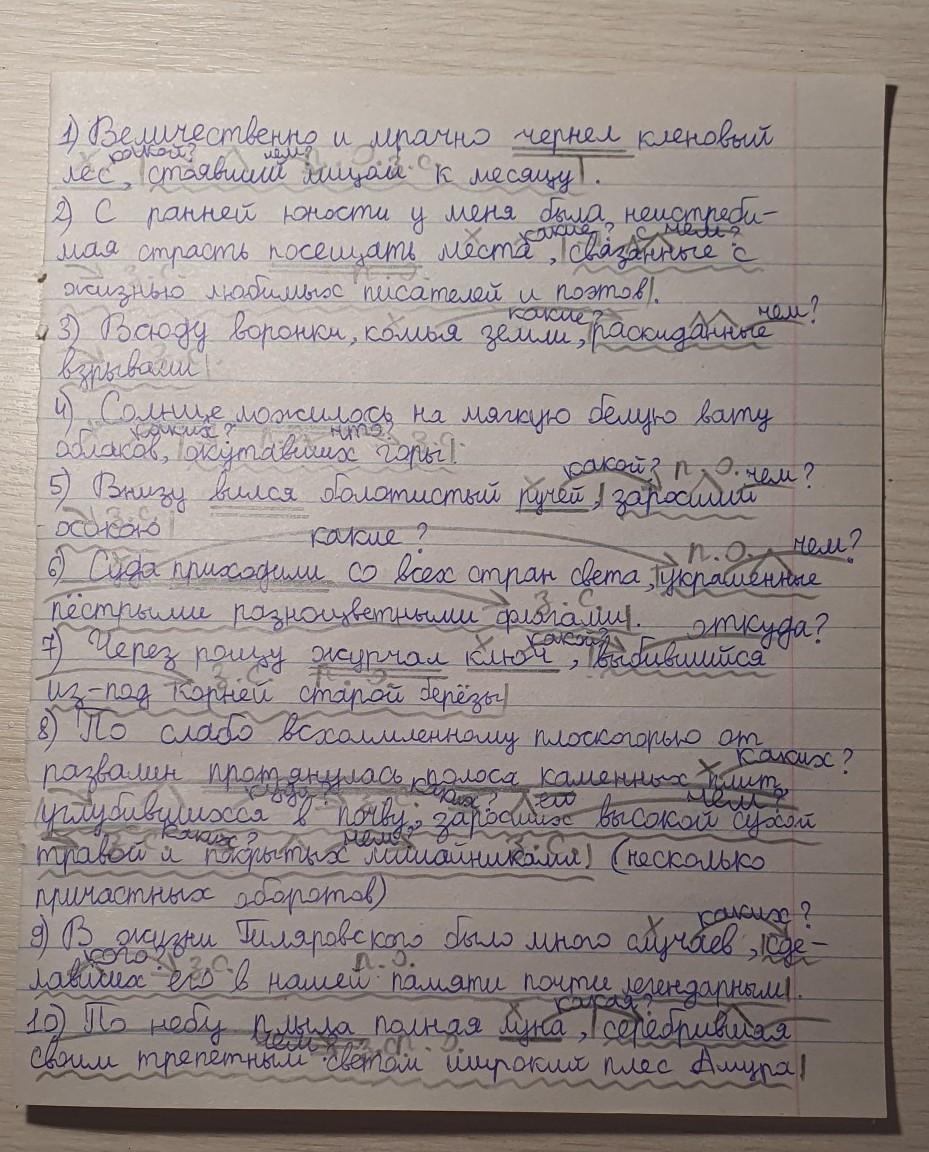 1) Величественно и мрачно чернел кленовый
какой? чем? п. о. з. с.
лес, стоявший лицом к месяцу.
2) С ранней юности у меня была неистреби-
какие? с чем?
мая страсть посещать места, связанные с
жизнью любимых писателей и поэтов.
какие? чем?
3) Всюду воронки, комья земли, раскиданные
взрывами
4) Солнце ложилось на мягкую белую вату
каких? что? з. с.
облаков, окутавших горы.
какой? п. о. чем?
5) Внизу вился болотистый ручей, заросший
з. с.
осокою
какие? п. о. чем?
6) Суда приходили со всех стран света, украшенные
з. с.
пёстрыми разноцветными флагами.
какой? откуда?
7) Через рощу журчал ключ, выбившийся
из-под корней старой берёзы
8) По слабо всхолмленному плоскогорью от
каких?
развалин протянулась полоса каменных плит,
куда? каких? чем?
углубившихся в почву, заросших высокой сухой
каких? чем?
травой и покрытых лишайниками (несколько
причастных оборотов)
каких?
9) В жизни Гиляровского было много случаев, сде-
кого? з. с. п. о.
лавших его в нашей памяти почти легендарным.
какая?
10) По небу плыла полная луна, серебрившая
чем? з. с. п. о.
своим трепетным светом широкий плес Амура